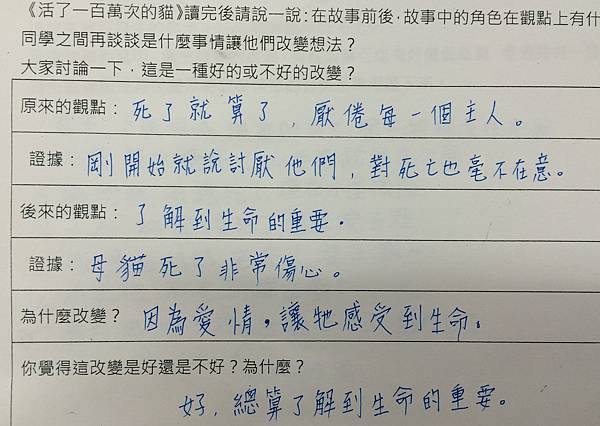 《活了一百萬次的貓》讀完後請說一說：在故事前後，故事中的角色在觀點上有什
同學之間再談談是什麼事情讓他們改變想法？
大家討論一下，這是一種好的或不好的改變？
原來的觀點：死了就算了，厭倦每一個主人。
證據：剛開始就說討厭他們，對死亡也毫不在意。
後來的觀點：了解到生命的重要。
證據：母貓死了非常傷心。
為什麼改變？因為愛情，讓牠感受到生命。
你覺得這改變是好還是不好？為什麼？
好，總算了解到生命的重要。